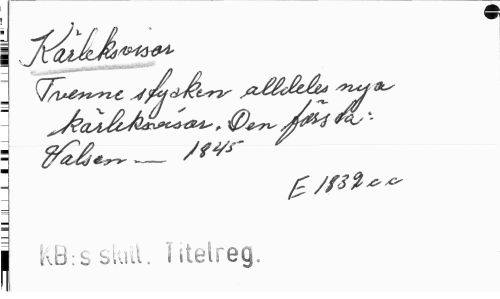 Kärleksvisor
Tvenne stycken alldeles nya
kärleksvisor. Den första:
Valsen — 1845
E 1839 c c
KB:s skill. Titelreg.